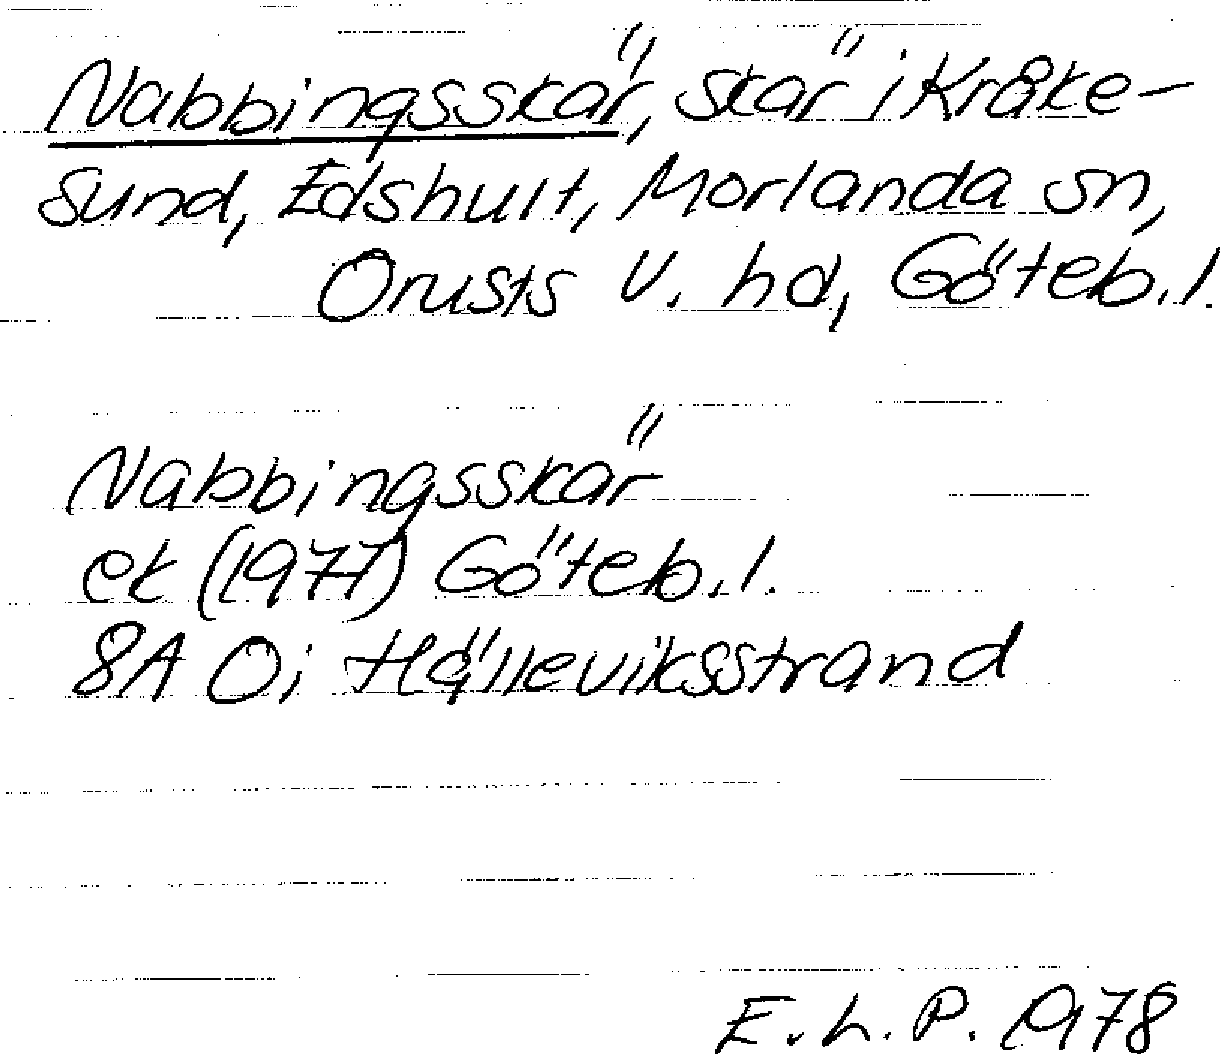 Nabbingsskär, skär i Kråke-
sund, Edshult, Morlanda sn,
Orusts V. hd, Göteb.l.
Nabbingsskär
ek (1977) Göteb.l.
8A Oi Hälleviksstrand
E.L.P. 1978